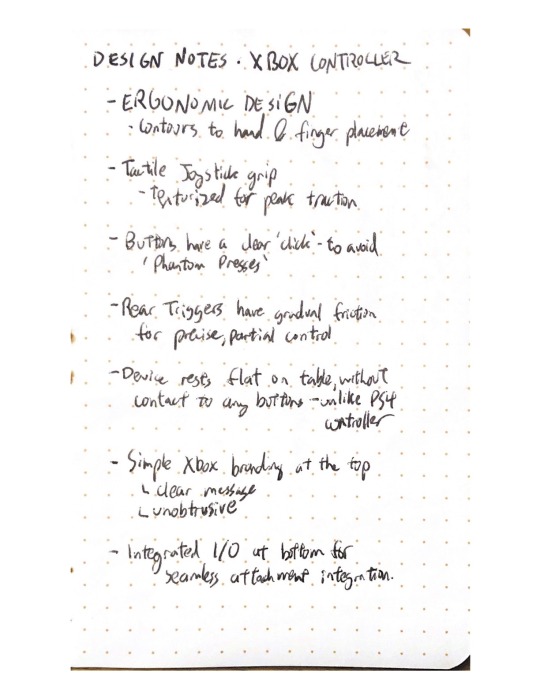 DESIGN NOTES · XBOX CONTROLLER
- ERGONOMIC DESIGN
· Contours to hand & finger placement
- Tactile Joystick grip
- Texturized for peak traction
- Buttons have a clear 'click' - to avoid
'Phantom Presses'
- Rear Triggers have gradual friction
for precise, partial control
- Device rests flat on table, without
contact to any buttons - unlike PS4
controller
- Simple Xbox branding at the top
↳ clear message
↳ unobtrusive
- Integrated I/O at bottom for
seamless attachment integration.